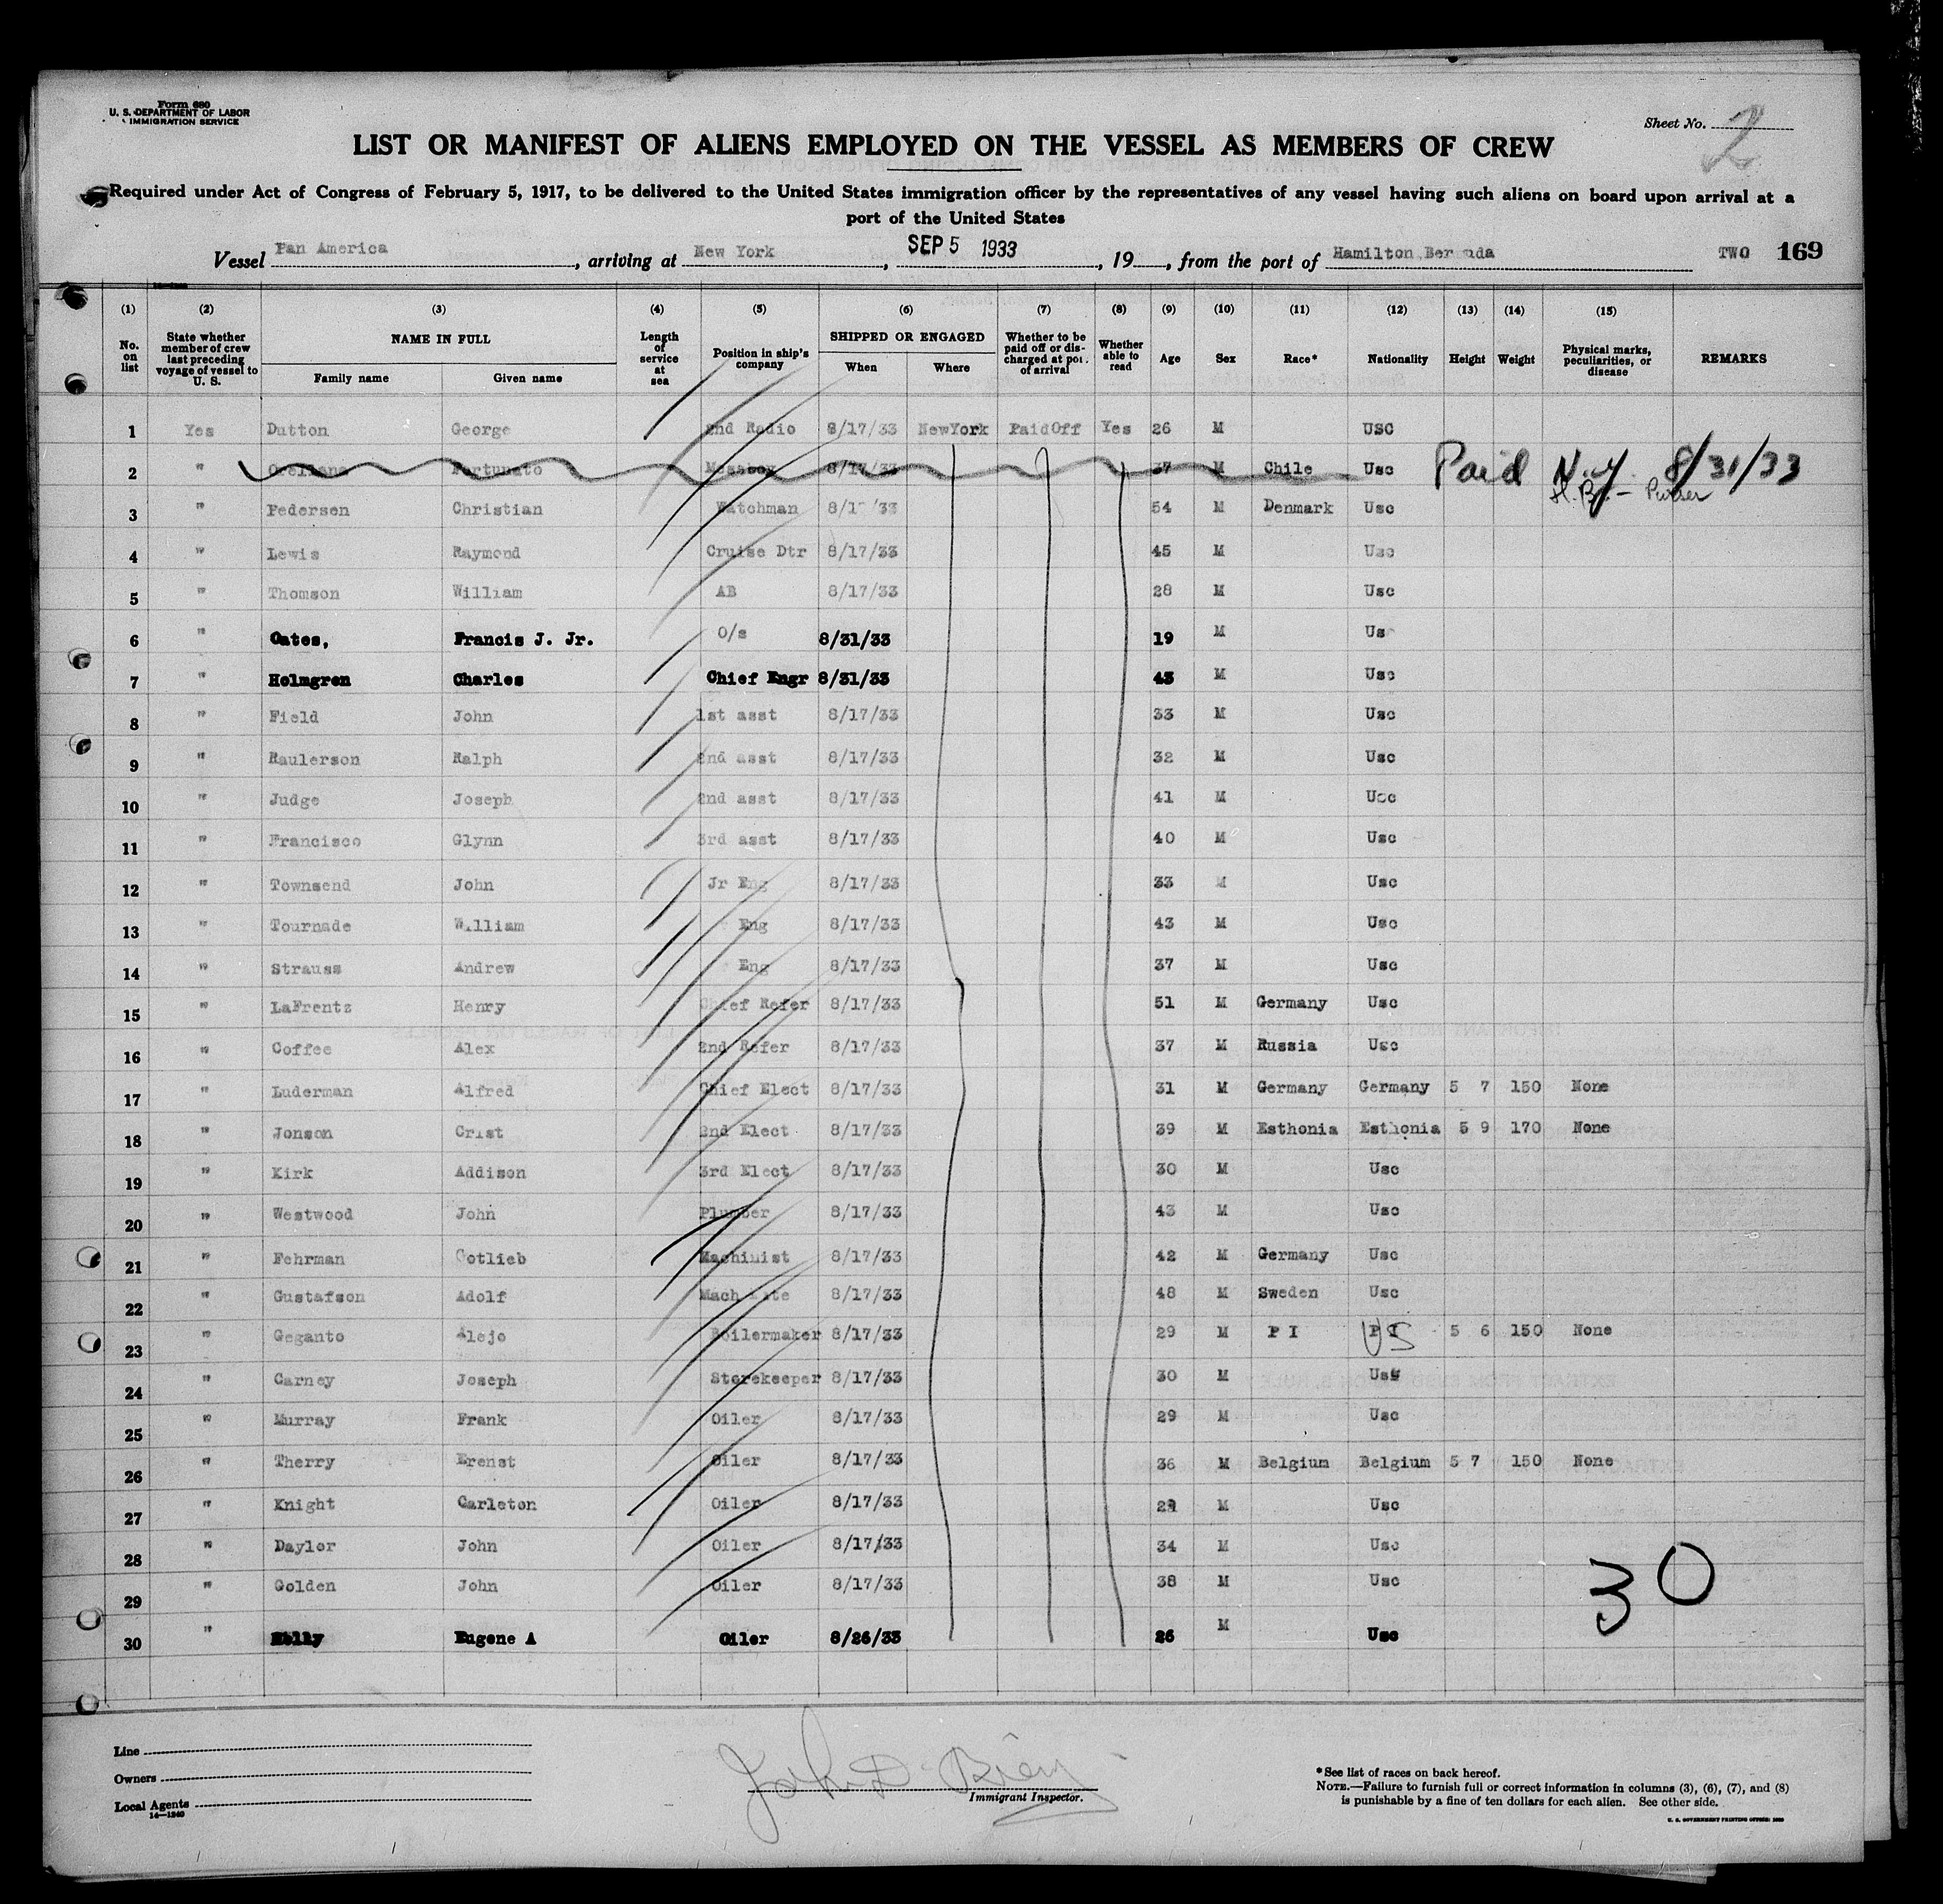 Form 680
U. S. DEPARTMENT OF LABOR
IMMIGRATION SERVICE
Sheet No. 2
LIST OR MANIFEST OF ALIENS EMPLOYED ON THE VESSEL AS MEMBERS OF CREW
Required under Act of Congress of February 5, 1917, to be delivered to the United States immigration officer by the representatives of any vessel having such aliens on board upon arrival at a
port of the United States
Vessel Pan America, arriving at New York, SEP 5 1933, 19, from the port of Hamilton Bermuda TWO 169
(1) (2) (3) (4) (5) (6) (7) (8) (9) (10) (11) (12) (13) (14) (15)
No. on list State whether member of crew last preceding voyage of vessel to U. S. NAME IN FULL Family name Given name Length of service at sea Position in ship's company SHIPPED OR ENGAGED When Where Whether to be paid off or discharged at port of arrival Whether able to read Age Sex Race* Nationality Height Weight Physical marks, peculiarities, or disease REMARKS
1 Yes Dutton George 2nd Radio 8/17/33 NewYork PaidOff Yes 26 M USC
2 " Orellana Fortunato Messboy 8/17/33 37 M Chile Usc Paid N.Y. 8/31/33
Purser
3 " Pedersen Christian Watchman 8/17/33 54 M Denmark Usc
4 " Lewis Raymond Cruise Dtr 8/17/33 45 M Usc
5 " Thomson William AB 8/17/33 28 M Usc
6 " Oates, Francis J. Jr. O/s 8/31/33 19 M Us
7 " Holmgren Charles Chief Engr 8/31/33 43 M Usc
8 " Field John 1st asst 8/17/33 33 M Usc
9 " Raulerson Ralph 2nd asst 8/17/33 32 M Usc
10 " Judge Joseph 2nd asst 8/17/33 41 M Usc
11 " Francisco Glynn 3rd asst 8/17/33 40 M Usc
12 " Townsend John Jr Eng 8/17/33 33 M Usc
13 " Tournade William Eng 8/17/33 43 M Usc
14 " Strauss Andrew Eng 8/17/33 37 M Usc
15 " LaFrentz Henry Chief Refer 8/17/33 51 M Germany Usc
16 " Coffee Alex 2nd Refer 8/17/33 37 M Russia Usc
17 " Luderman Alfred Chief Elect 8/17/33 31 M Germany Germany 5 7 150 None
18 " Jonson Crist 2nd Elect 8/17/33 39 M Esthonia Esthonia 5 9 170 None
19 " Kirk Addison 3rd Elect 8/17/33 30 M Usc
20 " Westwood John Plumber 8/17/33 43 M Usc
21 " Fehrman Gotlieb Machinist 8/17/33 42 M Germany Usc
22 " Gustafson Adolf Mach Mte 8/17/33 48 M Sweden Usc
23 " Geganto Alejo Boilermaker 8/17/33 29 M P I P I US 5 6 150 None
24 " Carney Joseph Storekeeper 8/17/33 30 M Usc
25 " Murray Frank Oiler 8/17/33 29 M Usc
26 " Therry Erenst Oiler 8/17/33 36 M Belgium Belgium 5 7 150 None
27 " Knight Carleton Oiler 8/17/33 M Usc
28 " Daylor John Oiler 8/17/33 34 M Usc
29 " Golden John Oiler 8/17/33 38 M Usc
30
30 " Eugene A Oiler 8/26/33 26 M Usc
Line
Owners
Local Agents
14—1240
Immigrant Inspector.
*See list of races on back hereof.
NOTE.—Failure to furnish full or correct information in columns (3), (6), (7), and (8)
is punishable by a fine of ten dollars for each alien. See other side.